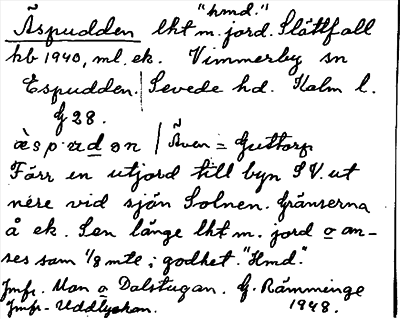 "hmd."
Äspudden lht m. jord. Slättfall
hb 1940, ml. ek. Vimmerby sn
Espudden. | Sevede hd. Kalm l.
G 28.
æ̀spɑdən | Även = Guttorp
Förr en utjord till byn S V. ut
nere vid sjön Solnen. Gränserna
å ek. Sen länge lht m. jord o an-
ses som 1/8 mte, i godhet. "Hmd."
Jmfr. Mon o Dalstugan. G. Rämminge
Jmfr. Uddlyckan. 1948.